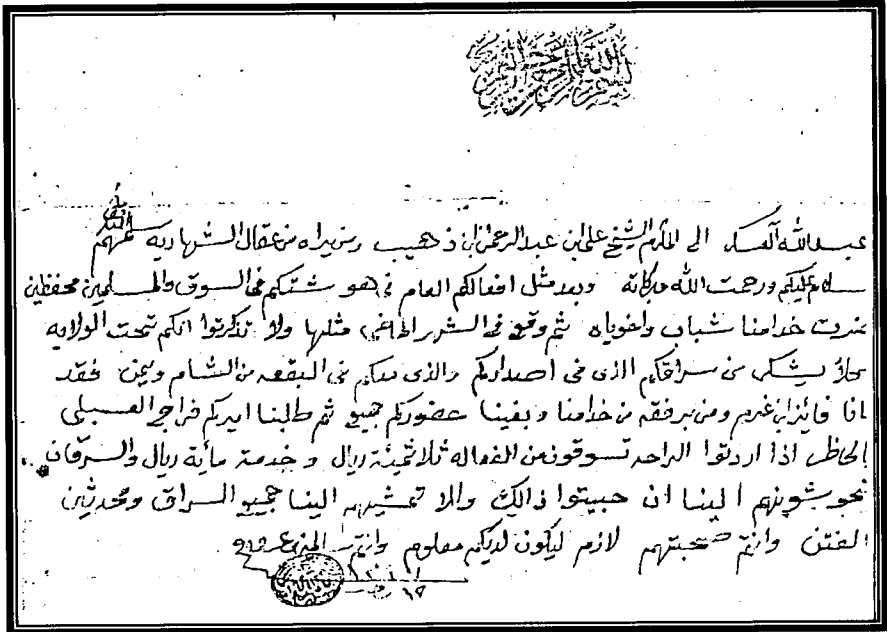 بسم الله الرحمن الرحيم
عبد الله العسكر الى المكرم الشيخ علي ابن عبد الرحمن ابن ذهيب ومن يراه من عقال الشهاريه عمهم
سلام عليكم ورحمت الله وبركاته وبعد مثل افعالكم العام في هوشتكم في السوق والمسلمين محفظين
خدامنا شباب واخوياه ثم وقع في الشهر الماضي مثلها ولا تذكرتوا انكم تحت الولايه
كلاً يشكي من سراقكم الذي في اصداركم والذي معكم في البقعه من الشام ويمن فقد
فائز ابن غرم ومن برفقه من خدامنا وبغينا حضوركم جميع ثم طلبنا اميركم فراج العسبلي
الحاظر اذا اردتوا الراحه تسوقون من الفعاله ثلاثمئة ريال وخدمة مأية ريال والسرقان
تجو بثوبتهم الينا ان حبيتوا ذالك والا تمشيهم الينا جميع السراق ومحدثين
الفتن وانتم صحبتهم لازم ليكون لديكم معلوم وانتم